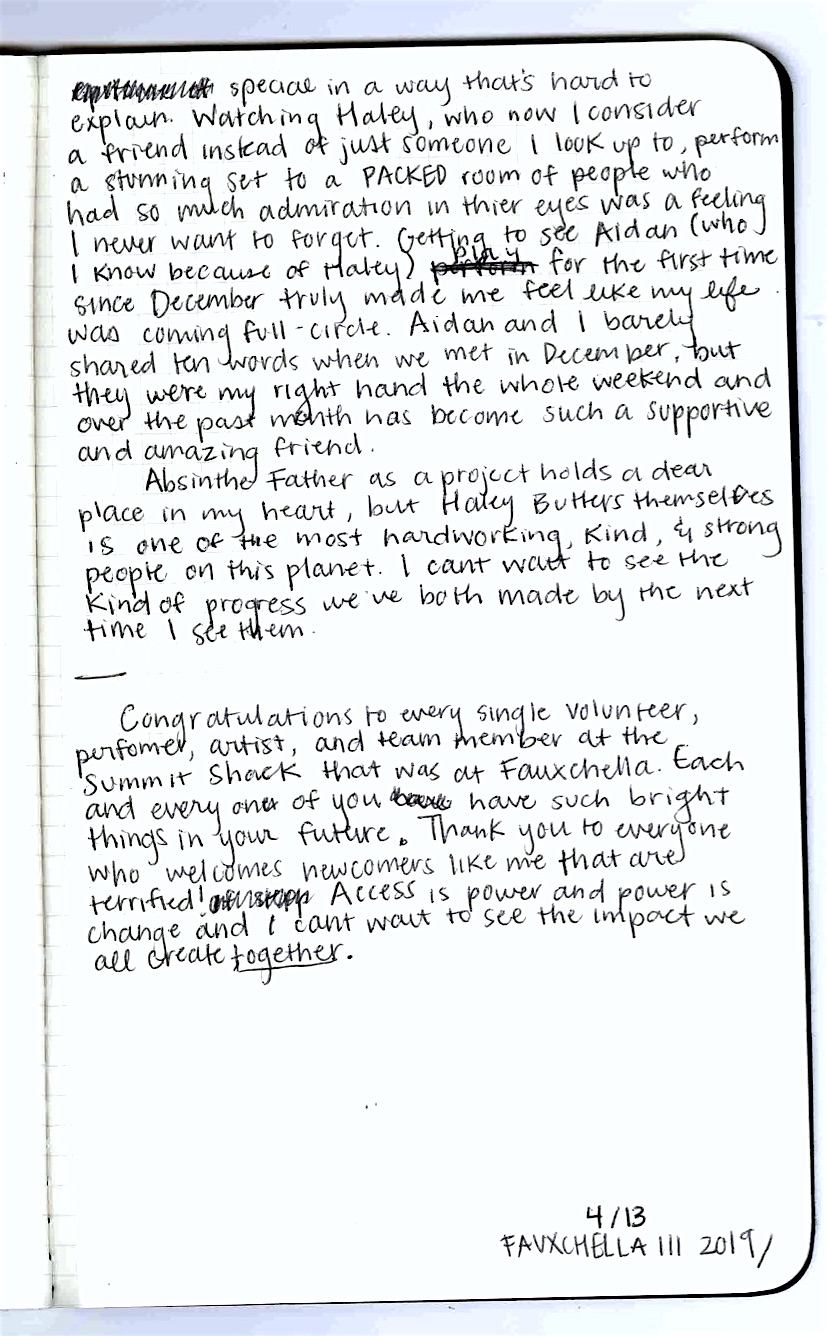 special in a way that's hard to
explain. Watching Haley, who now I consider
a friend instead of just someone I look up to, perform
a stunning set to a PACKED room of people who
had so much admiration in thier eyes was a feeling
I never want to forget. Getting to see Aidan (who
I know because of Haley) play perform for the first time
since December truly made me feel like my life
was coming full-circle. Aidan and I barely
shared ten words when we met in December, but
they were my right hand the whole weekend and
over the past month has become such a supportive
and amazing friend.
Absinthe Father as a project holds a dear
place in my heart, but Haley Butters themselves
is one of the most hardworking, kind, & strong
people on this planet. I cant wait to see the
kind of progress we've both made by the next
time I see them.
Congratulations to every single volunteer,
perfomer, artist, and team member at the
Summit Shack that was at Fauxchella. Each
and every one of you have such bright
things in your future. Thank you to everyone
who welcomes newcomers like me that are
terrified! Access is power and power is
change and I cant wait to see the impact we
all create together.
4/13
FAUXCHELLA III 2019/